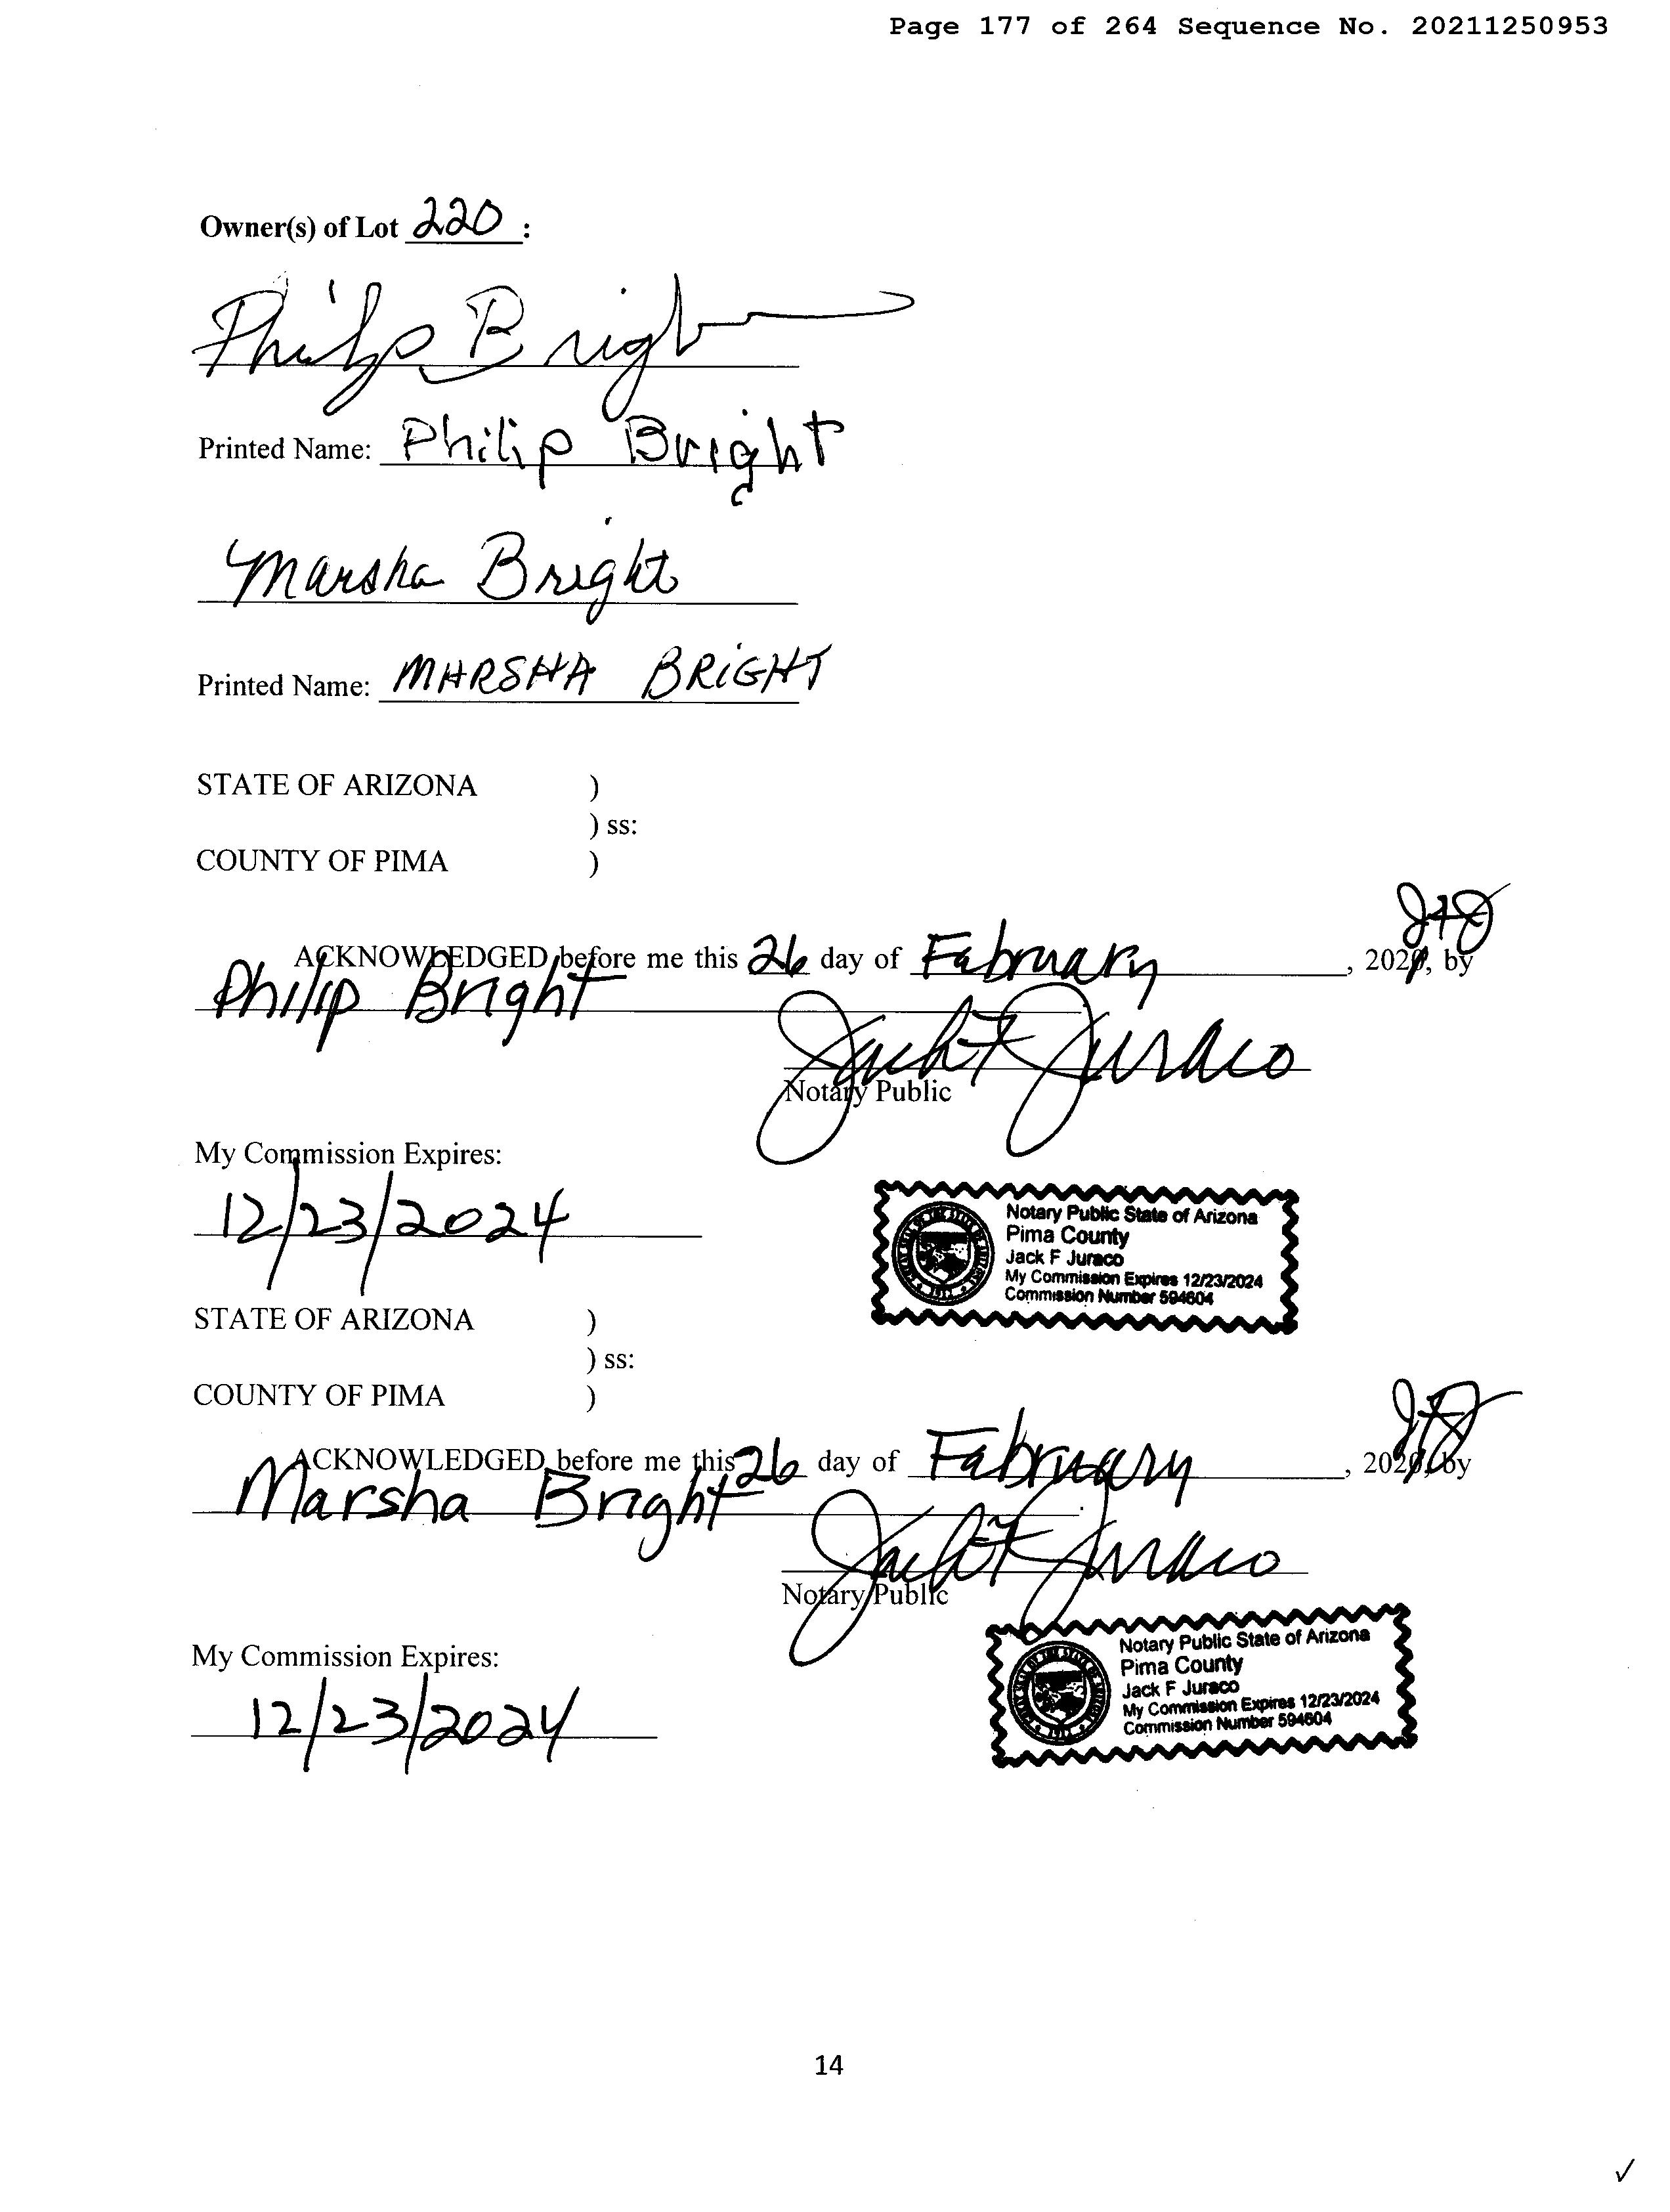 Page 177 of 264 Sequence No. 20211250953
Owner(s) of Lot 220 :
Philip Bright
Printed Name: Philip Bright
Marsha Bright
Printed Name: MARSHA BRIGHT
STATE OF ARIZONA )
) ss:
COUNTY OF PIMA )
JFJ
ACKNOWLEDGED before me this 26 day of February, 2021, by
Philip Bright
Jack F Juraco
Notary Public
My Commission Expires:
12/23/2024
Notary Public State of Arizona
Pima County
Jack F Juraco
My Commission Expires 12/23/2024
Commission Number 594604
STATE OF ARIZONA )
) ss:
COUNTY OF PIMA )
JFJ
ACKNOWLEDGED before me this 26 day of February, 2021, by
Marsha Bright
Jack F Juraco
Notary Public
My Commission Expires:
12/23/2024
Notary Public State of Arizona
Pima County
Jack F Juraco
My Commission Expires 12/23/2024
Commission Number 594604
14